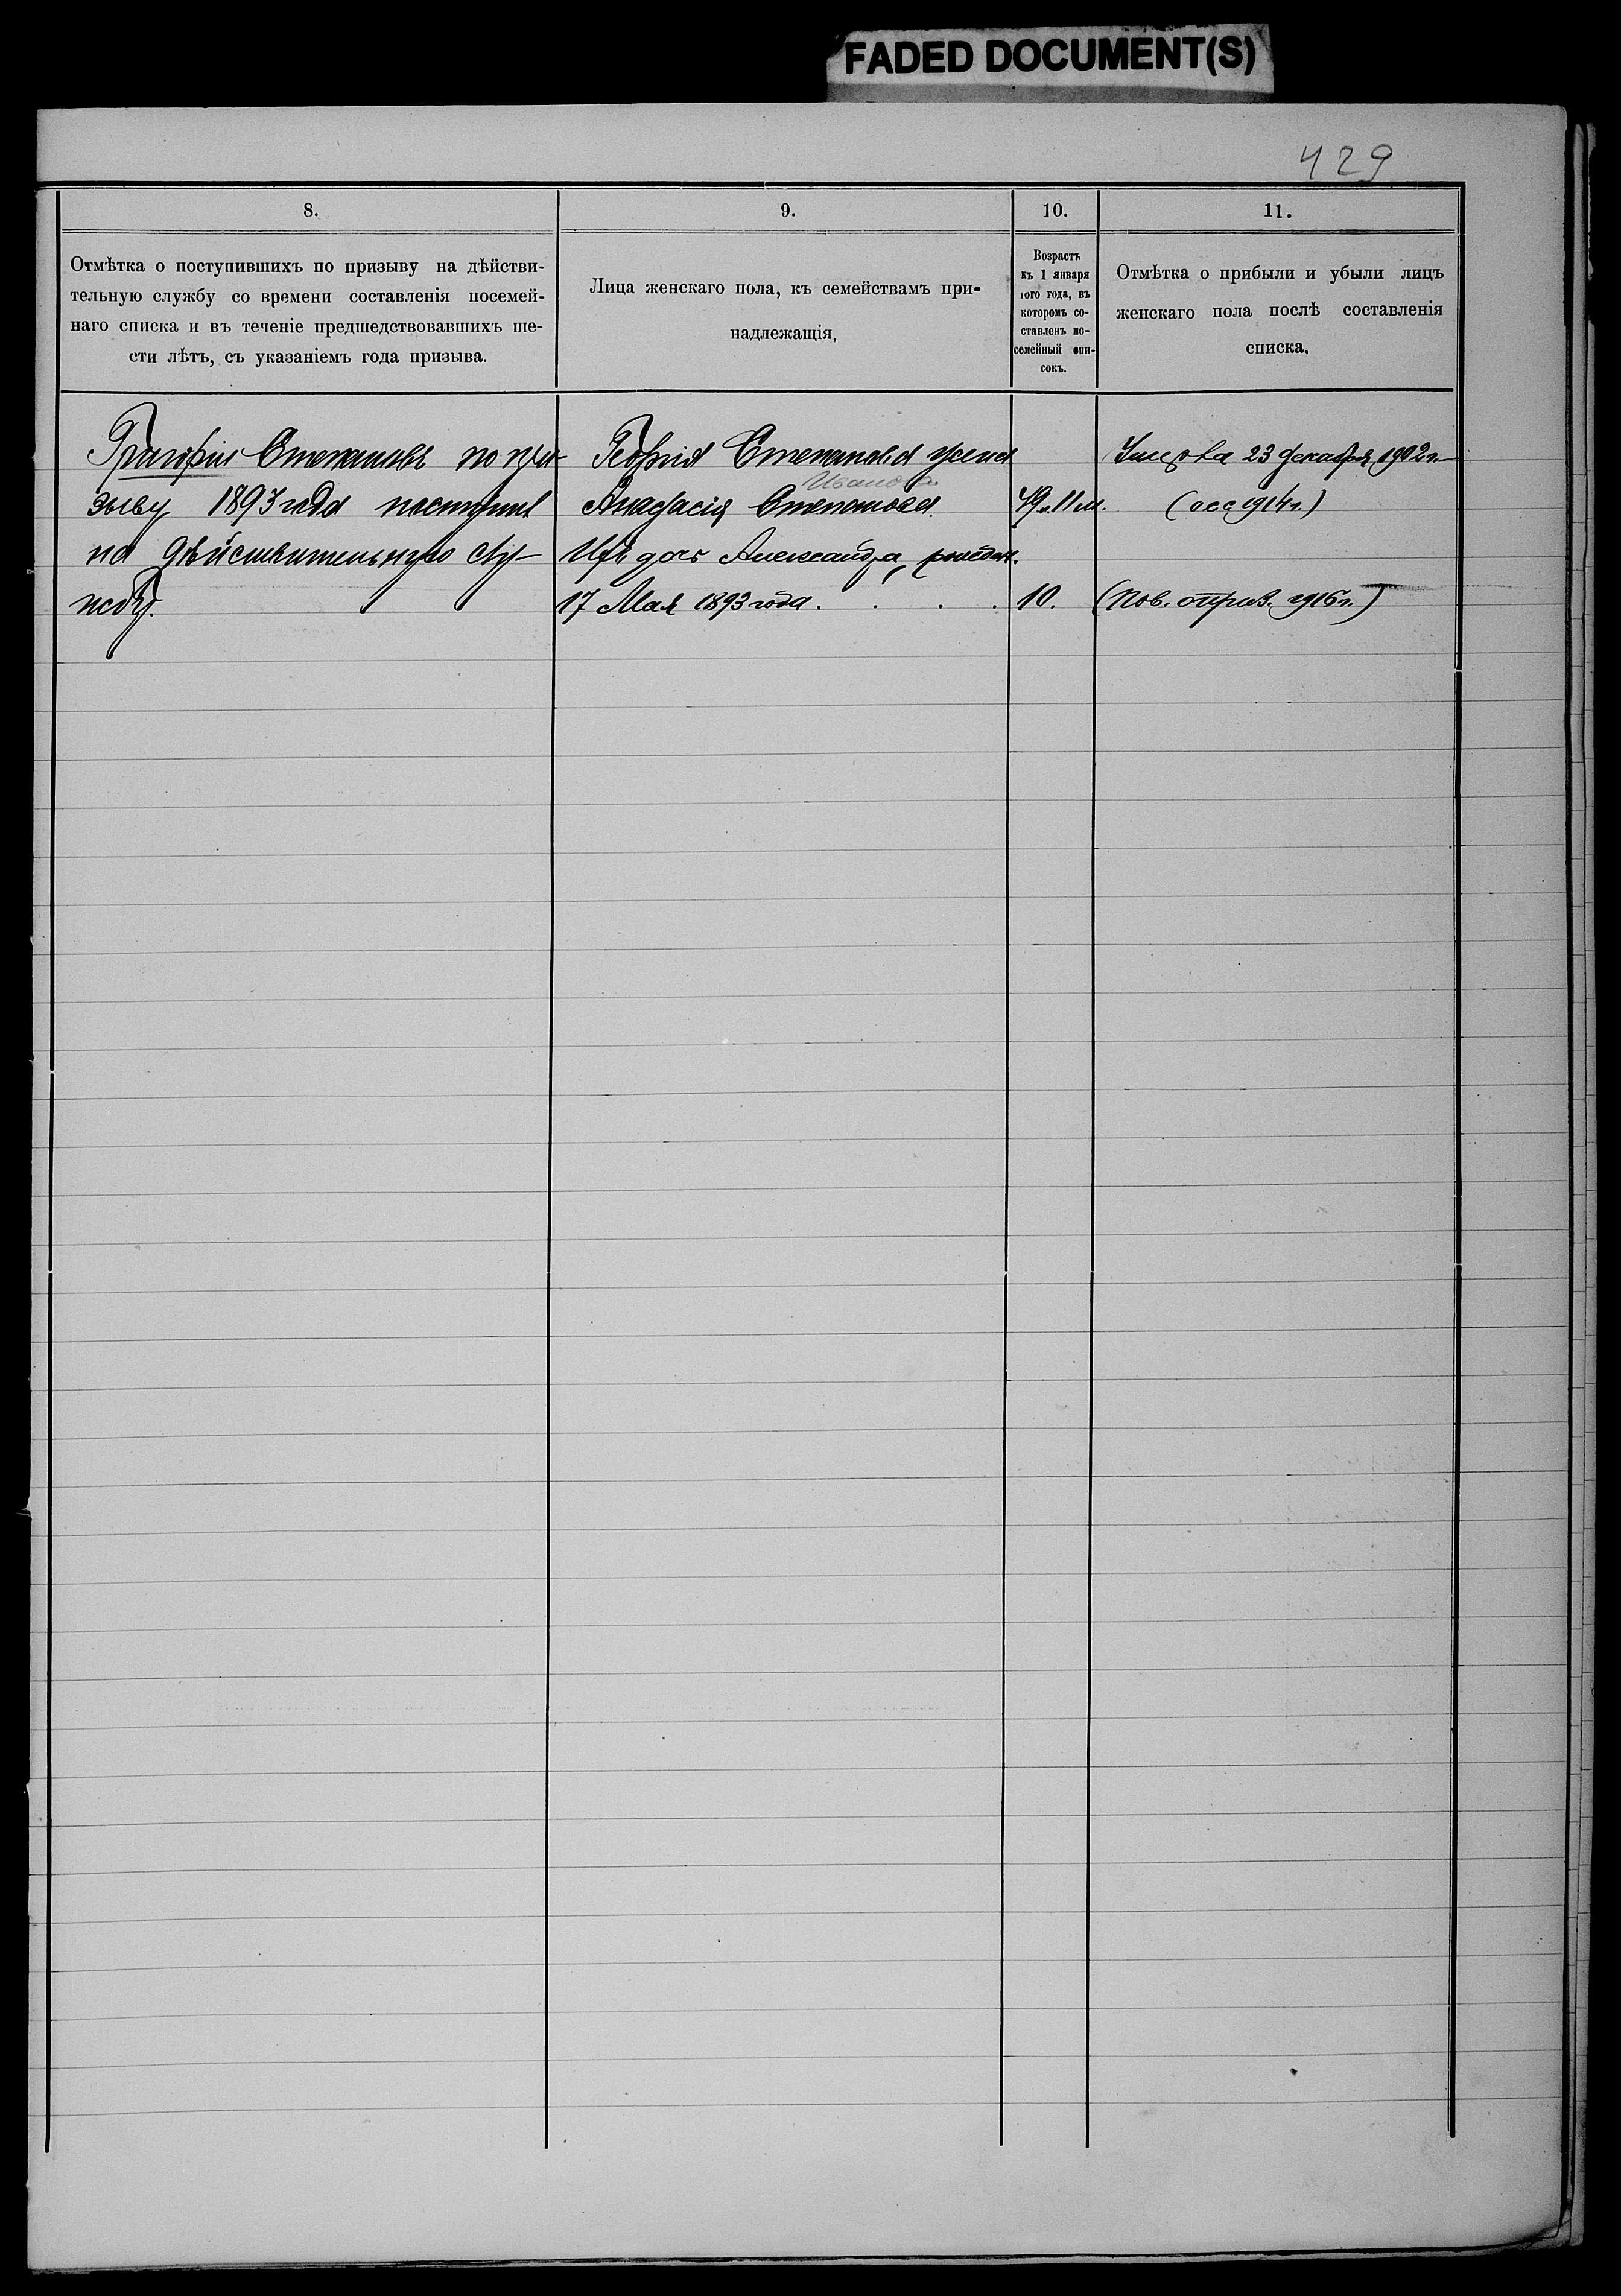 FADED DOCUMENT(S)
429
8.
Отмѣтка о поступившихъ по призыву на дѣйстви-
тельную службу со времени составленія посемей-
наго списка и въ теченіе предшедствовавшихъ ше-
сти лѣтъ, съ указаніемъ года призыва.
9.
Лица женскаго пола, къ семействамъ при-
надлежащія,
10.
Возрастъ
къ 1 января
того года, въ
которомъ со-
ставленъ по-
семейный спи-
сокъ.
11.
Отмѣтка о прибыли и убыли лицъ
женскаго пола послѣ составленія
списка,
Григорій Степановъ по при-
зыву 1893 года поступилъ
на дѣйствительную слу-
жбу.
Степанова жена
Иванова
Степанова
Ихъ дочь Александра, рожден.
17 Мая 1893 года . . . .
49 л. 11 м.
10.
Умерла 23 декабря 1902 г.
1914 г.)
1916 г.)